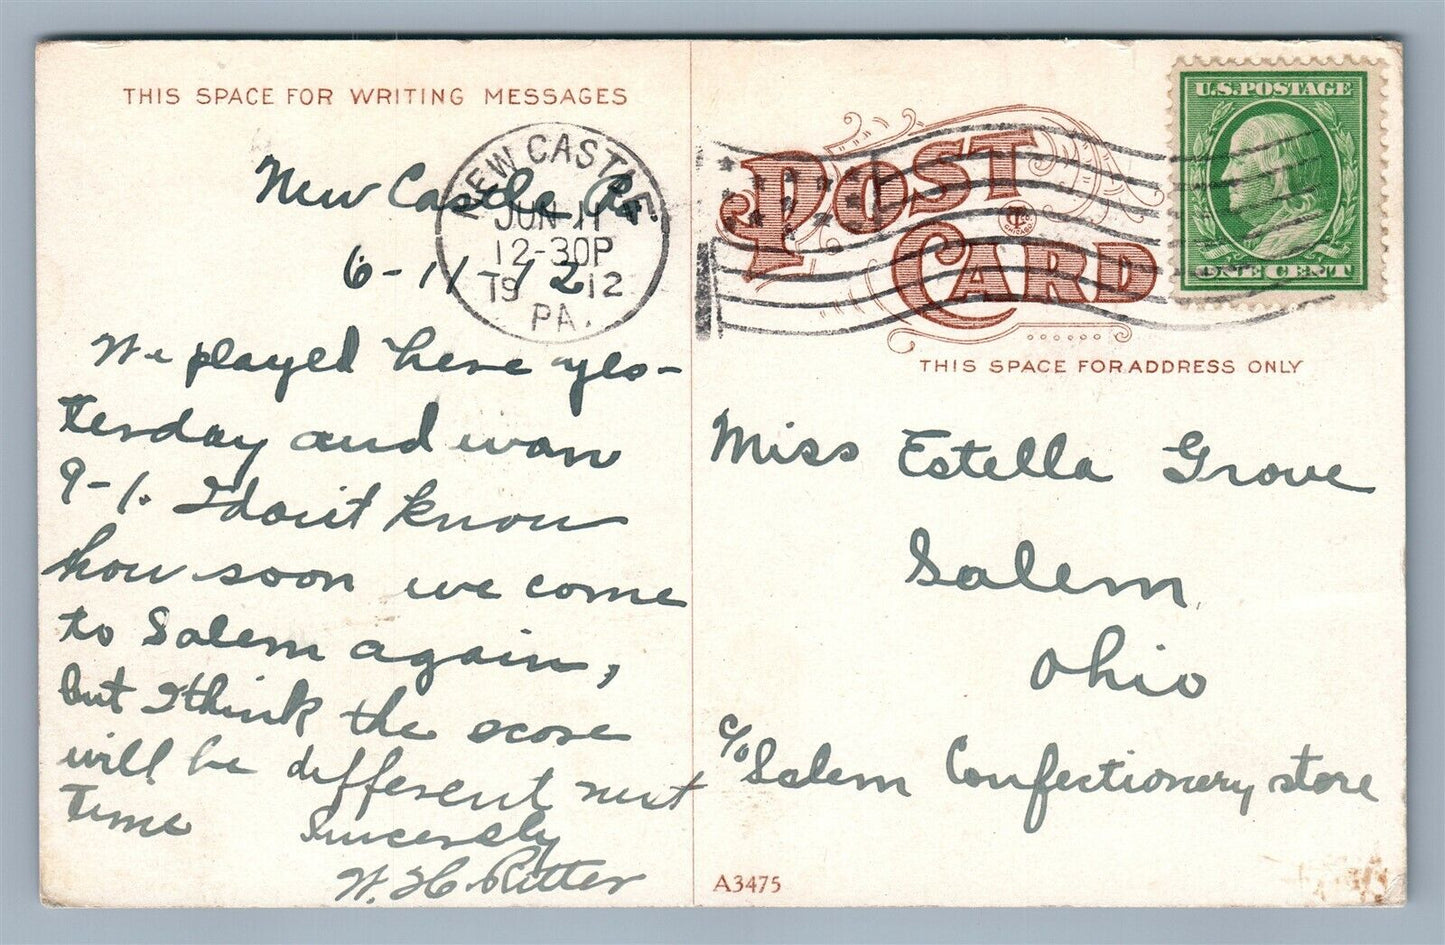 THIS SPACE FOR WRITING MESSAGES
New Castle, Pa.
6-11 12
We played here yes-
terday and won
9-1. I don't know
how soon we come
to Salem again,
but I think the score
will be different next
time
Sincerely
W. H. Ritter
NEW CASTLE
JUN 11
12-30P
1912
PA.
POST
CARD
CHICAGO
U.S. POSTAGE
ONE CENT
THIS SPACE FOR ADDRESS ONLY
Miss Estella Grove
Salem,
Ohio
c/o Salem Confectionery store
A3475